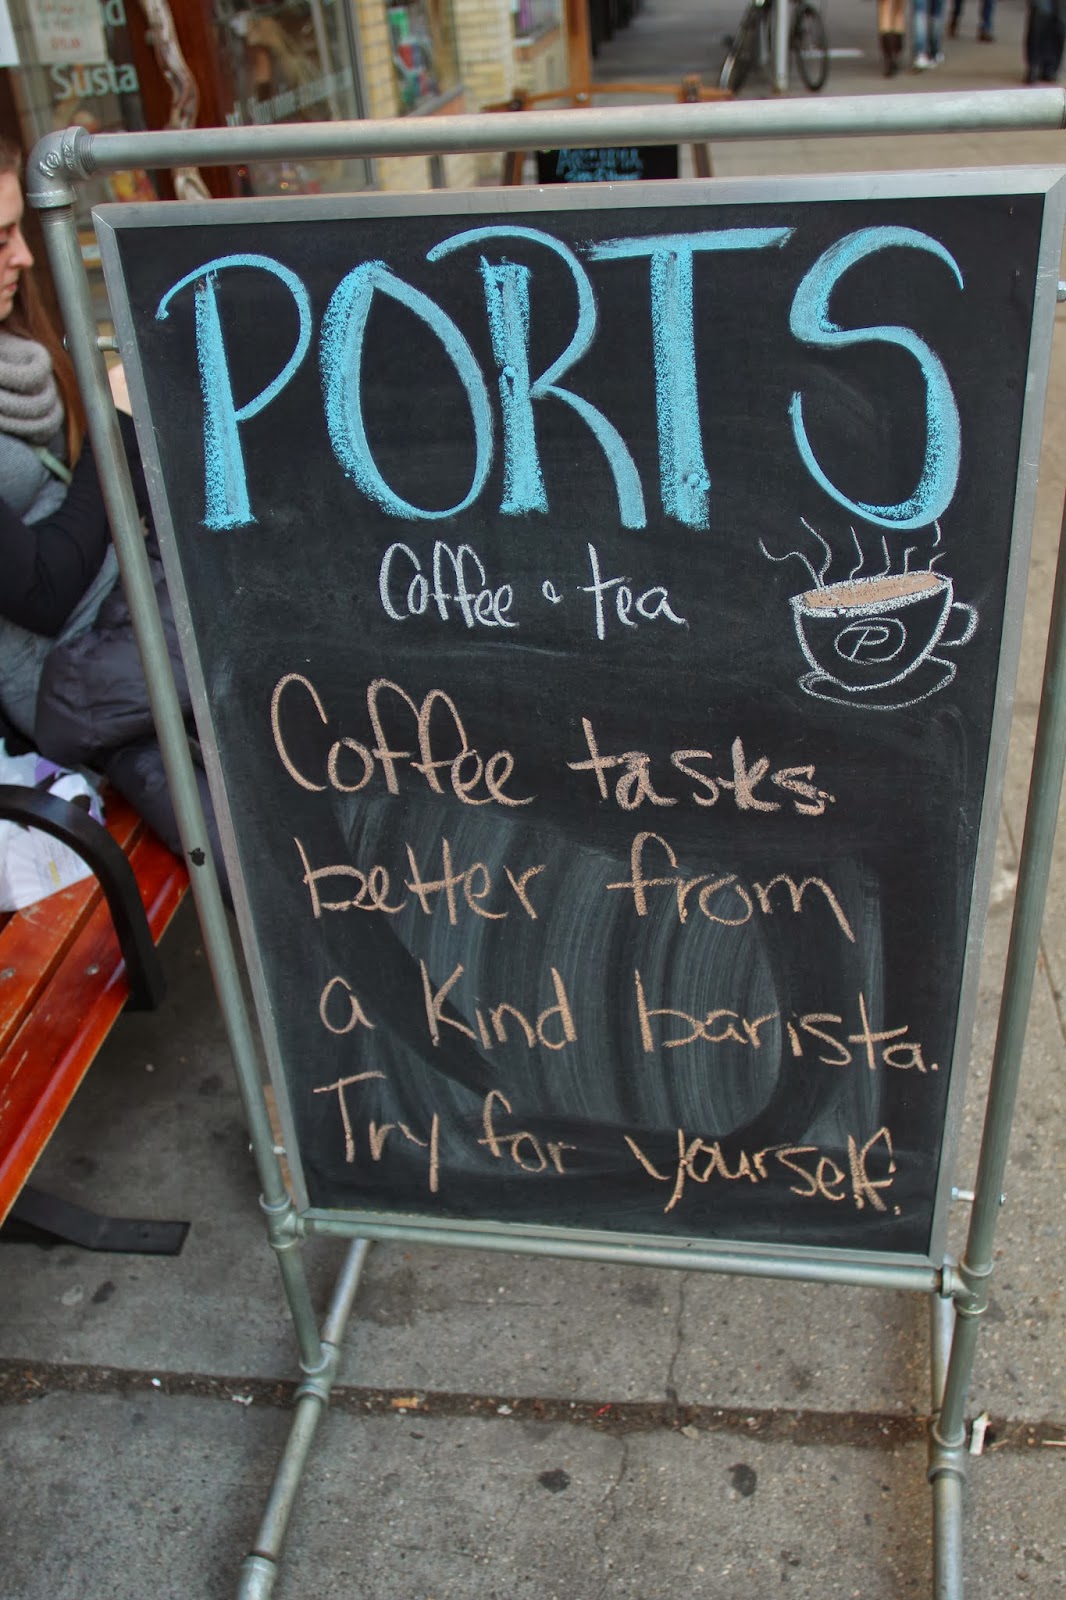 Susta
PORTS
Coffee & tea
P
Coffee tasks
better from
a kind barista.
Try for yourself.